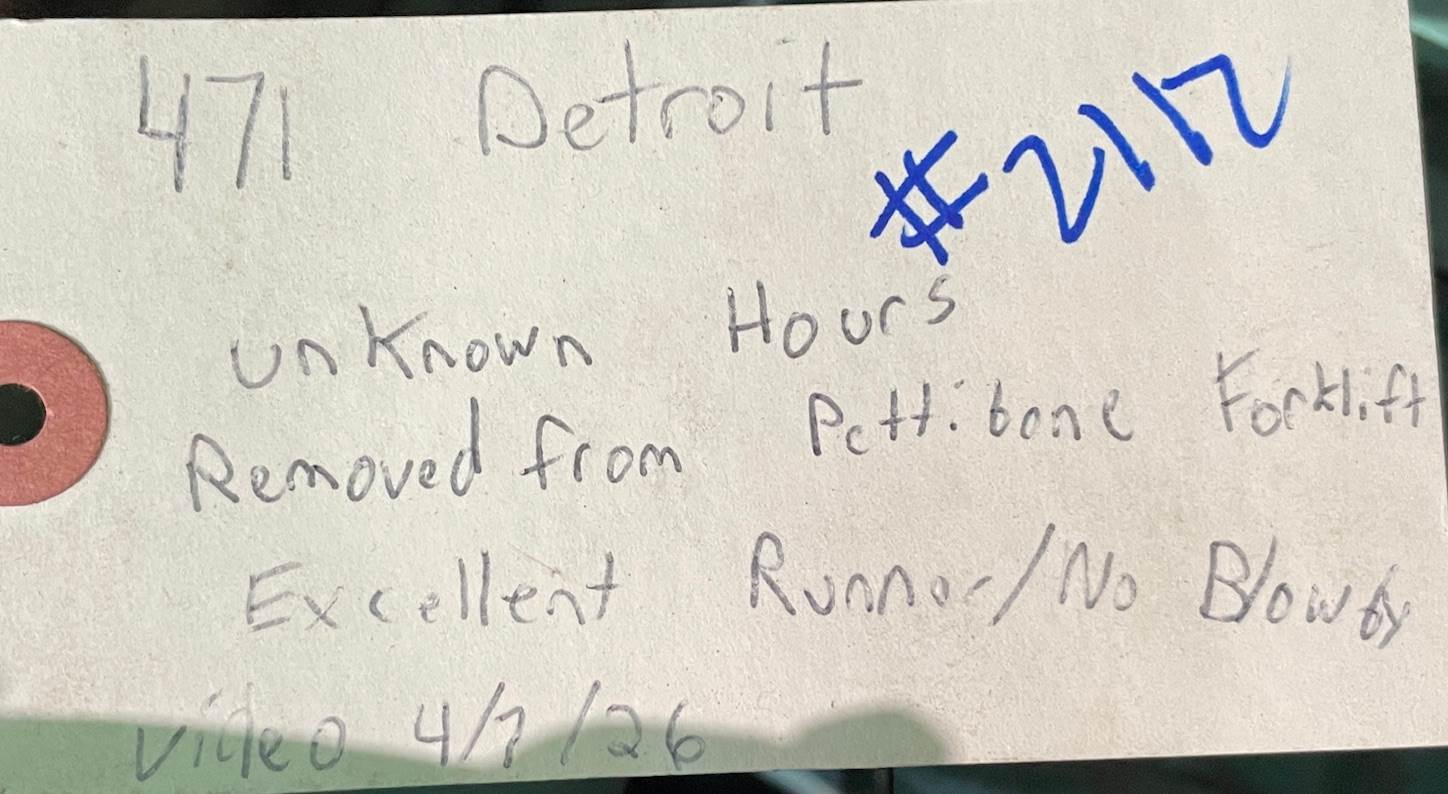 471 Detroit #2112
unknown Hours
Removed from Pettibone Forklift
Excellent Runner/No Blowby
Video 4/7/26